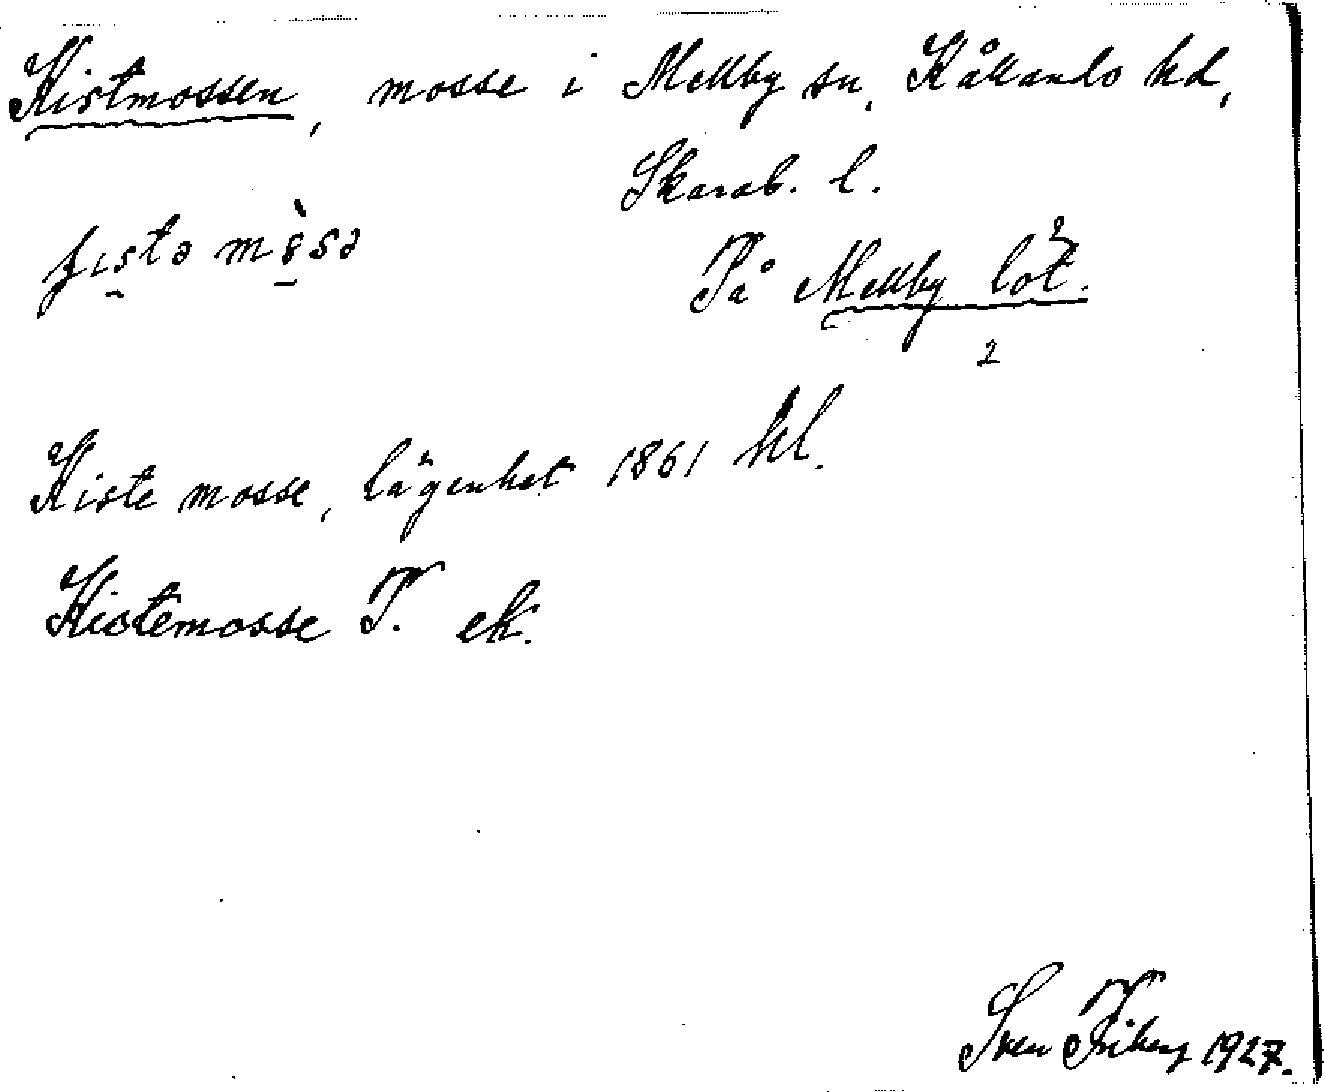 Kistmossen, mosse i Mellby sn, Kållands hd,
Skarab. l.
På Mellby löt.
2
Kiste mosse, lägenhet 1861 kl.
Kistemosse T. ek.
Sven Friberg 1927.